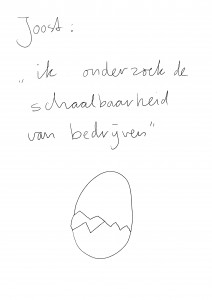 Joost:
"ik onderzoek de
schaalbaarheid
van bedrijven"